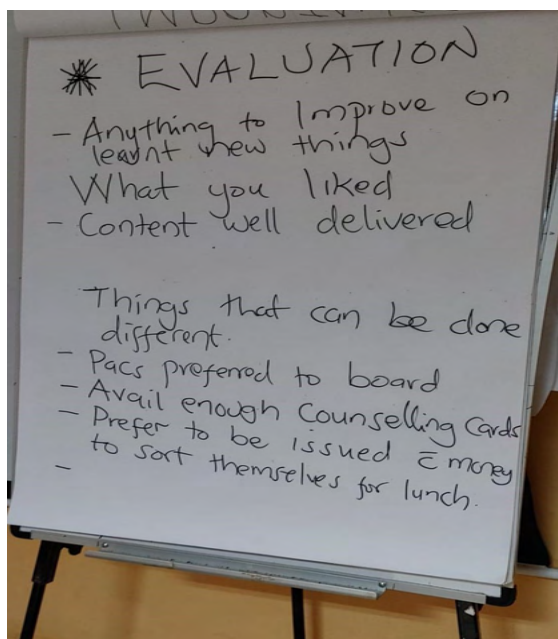 * EVALUATION
- Anything to Improve on
learnt new things
What you liked
- Content well delivered
Things that can be done
different.
- Pacs preferred to board
- Avail enough Counselling Cards
- Prefer to be issued c̄ money
to sort themselves for lunch.
-